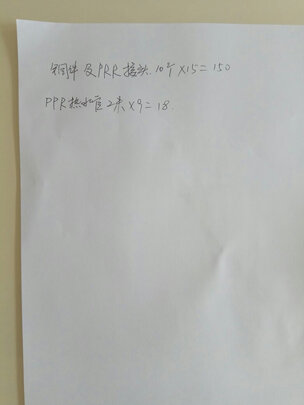 铜件及PRR接头 10个×15=150
PPR热水管 2米×9=18.